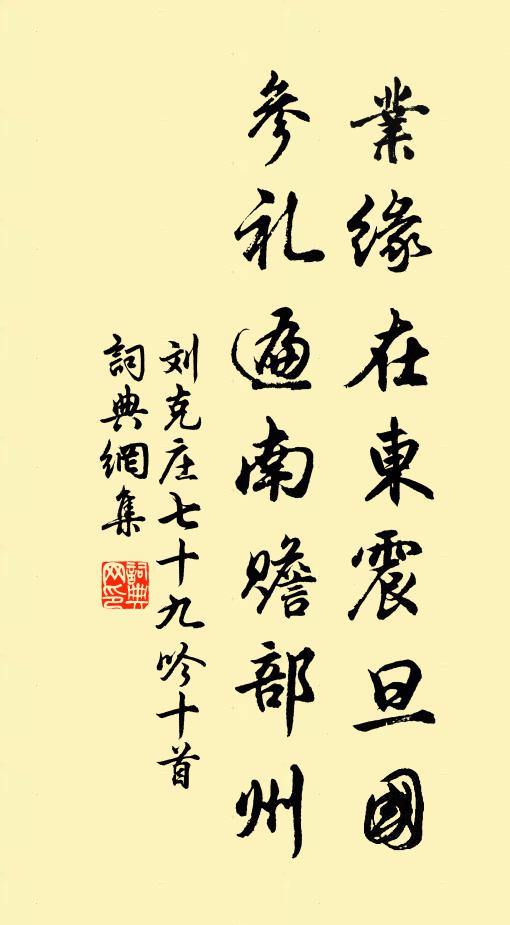 業緣在東震旦國
參礼遍南贍部州
刘克庄七十九吟十首
詞典網集
詞典网印